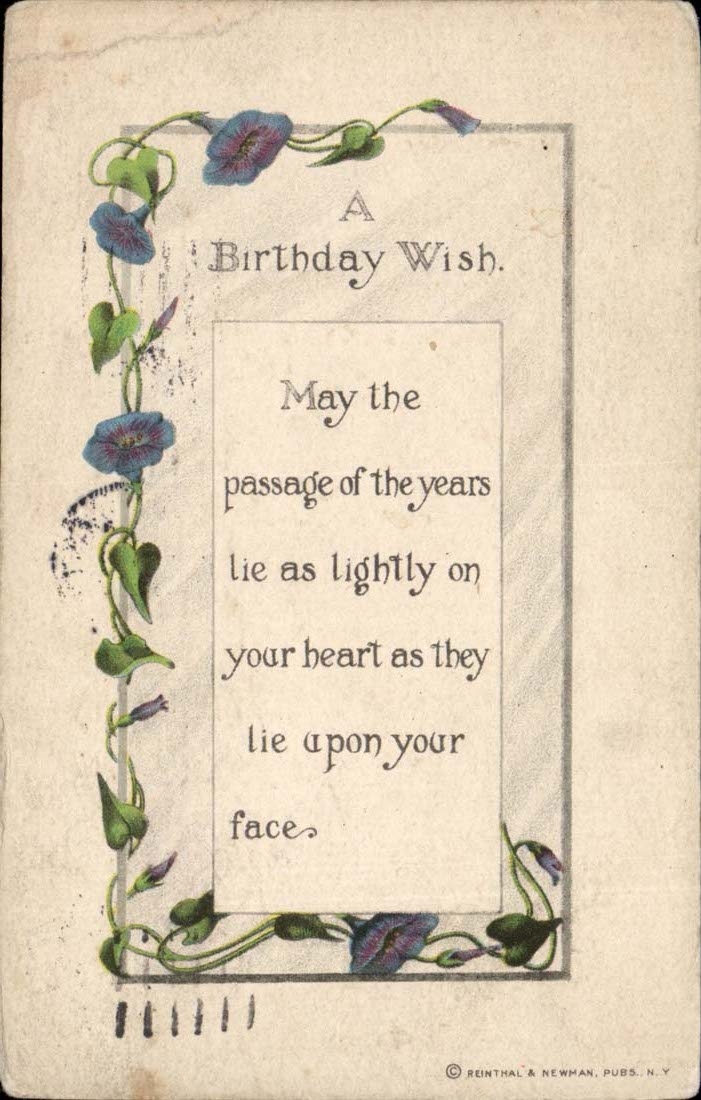 A
Birthday Wish.
May the
passage of the years
lie as lightly on
your heart as they
lie upon your
face.
© REINTHAL & NEWMAN, PUBS. N. Y